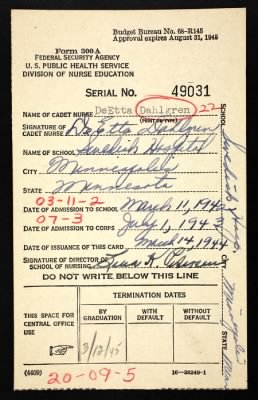 Budget Bureau No. 68-R145
Approval expires August 31, 1945
Form 300A
FEDERAL SECURITY AGENCY
U. S. PUBLIC HEALTH SERVICE
DIVISION OF NURSE EDUCATION
SERIAL NO. 49031
NAME OF CADET NURSE DeEtta Dahlgren 22
(PRINT OR TYPE)
SIGNATURE OF CADET NURSE DeEtta Dahlgren
NAME OF SCHOOL Swedish Hospital
CITY Minneapolis
STATE Minnesota
03-11-2
DATE OF ADMISSION TO SCHOOL March 11, 1942
07-3
DATE OF ADMISSION TO CORPS July 1, 1943
DATE OF ISSUANCE OF THIS CARD March 14, 1944
SIGNATURE OF DIRECTOR OF SCHOOL OF NURSING
DO NOT WRITE BELOW THIS LINE
TERMINATION DATES
THIS SPACE FOR CENTRAL OFFICE USE
BY GRADUATION
WITH DEFAULT
WITHOUT DEFAULT
3/12/45
(4409)
20-09-5
16-38249-1
SCHOOL Swedish Hosp
CITY
STATE